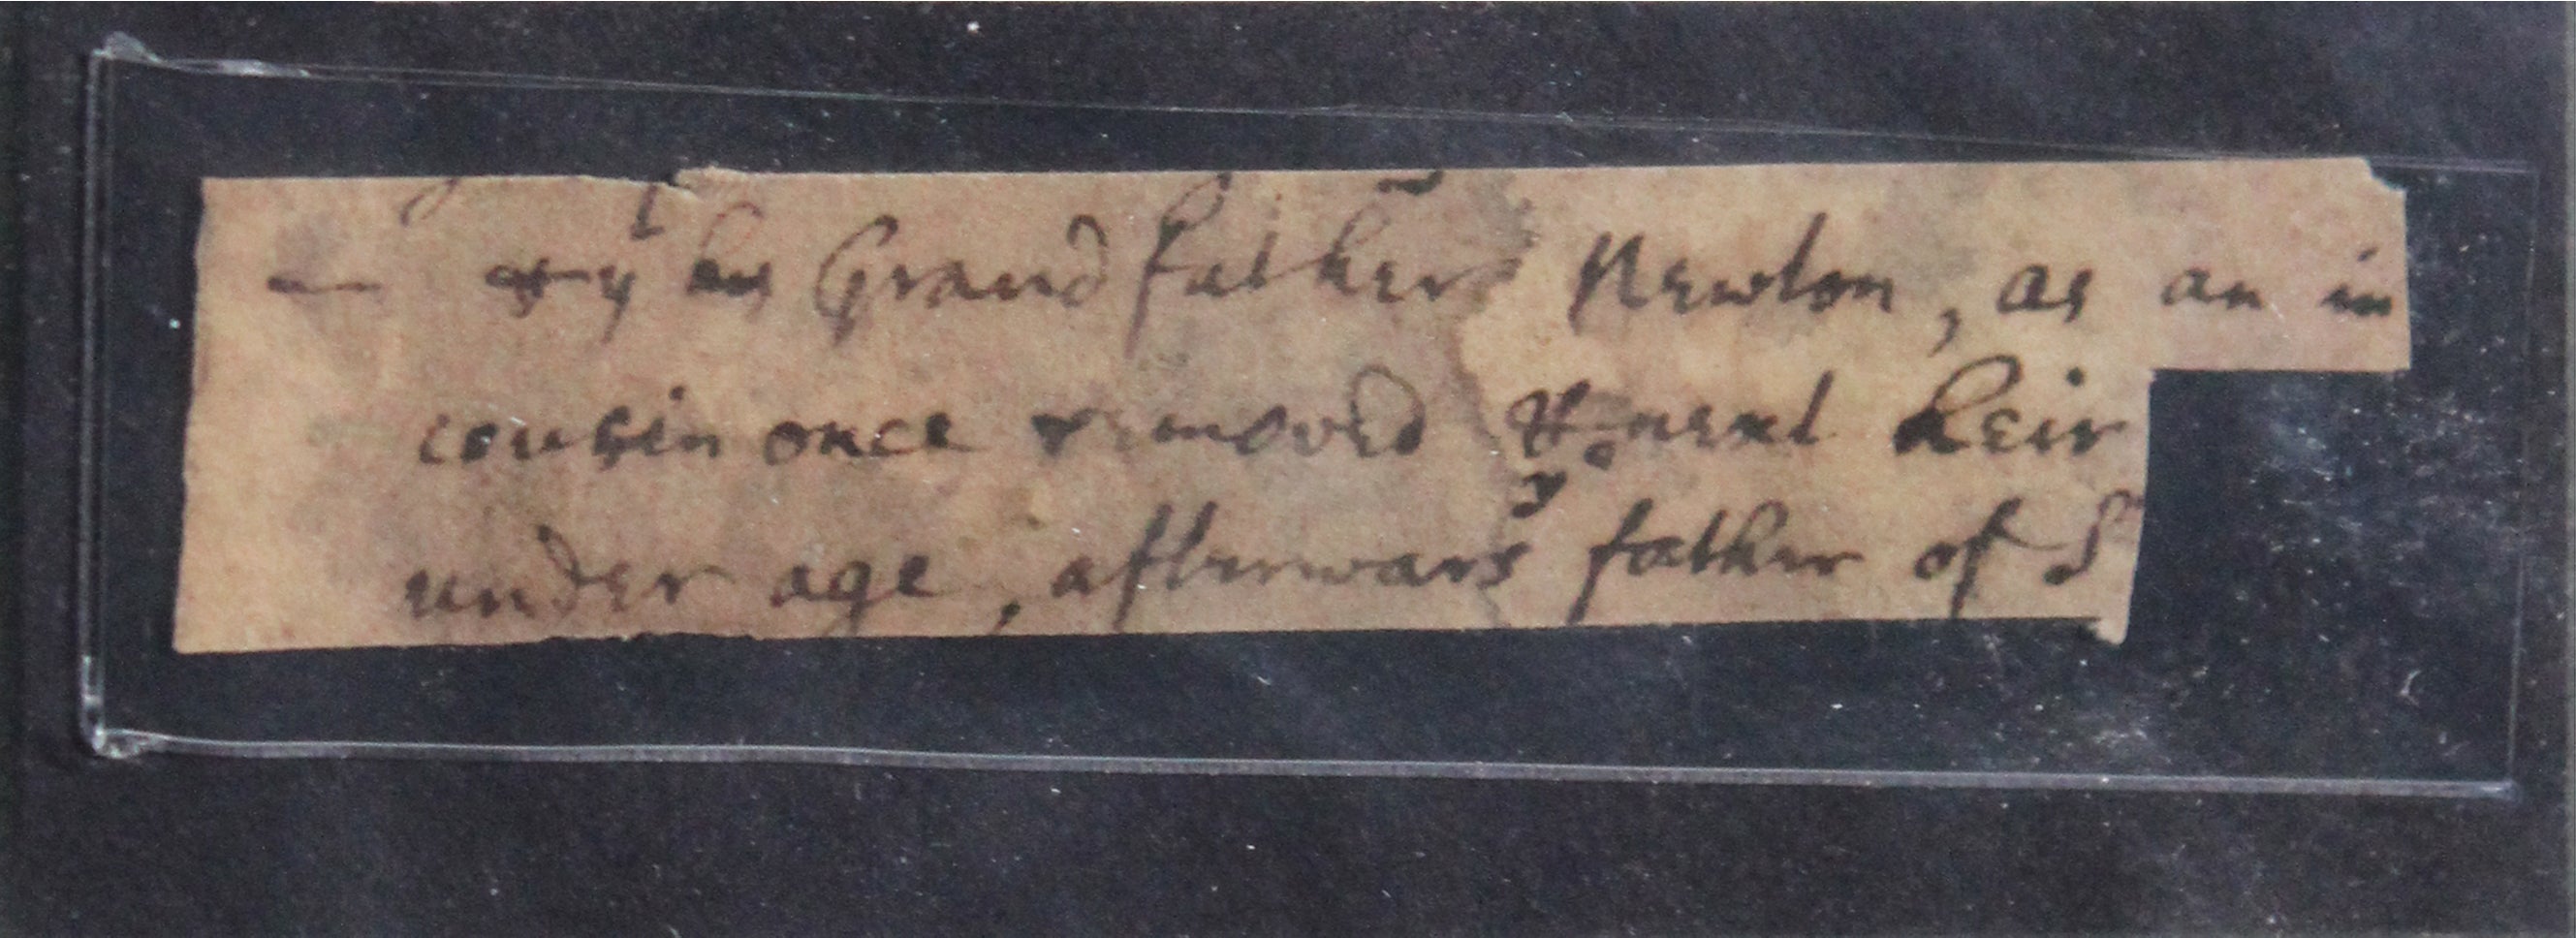 by his Grandfather Newton, as an in
cousin once removed & next heir
yᵉ
under age, afterwars father of S